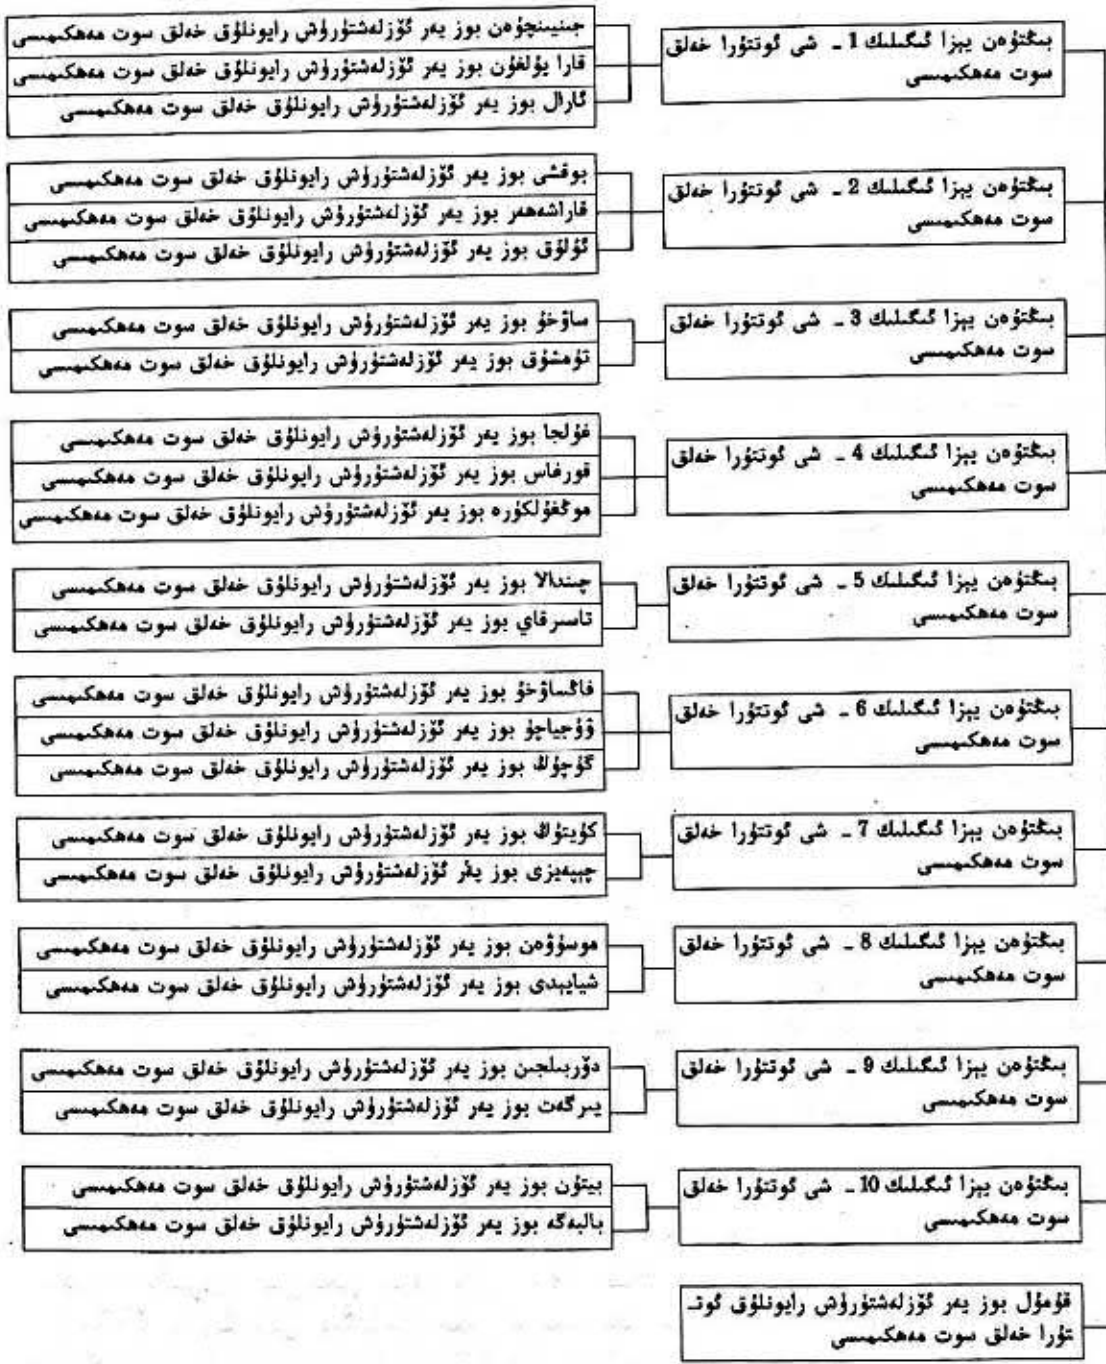 بىڭتۇەن يېزا ئىگىلىك 1 ـ شى ئوتتۇرا خەلق
سوت مەھكىمىسى
جىنيىنچۇەن بوز يەر ئۆزلەشتۈرۈش رايونلۇق خەلق سوت مەھكىمىسى
قارا يۇلغۇن بوز يەر ئۆزلەشتۈرۈش رايونلۇق خەلق سوت مەھكىمىسى
ئارال بوز يەر ئۆزلەشتۈرۈش رايونلۇق خەلق سوت مەھكىمىسى
بىڭتۇەن يېزا ئىگىلىك 2 ـ شى ئوتتۇرا خەلق
سوت مەھكىمىسى
بوقشى بوز يەر ئۆزلەشتۈرۈش رايونلۇق خەلق سوت مەھكىمىسى
قاراشەھەر بوز يەر ئۆزلەشتۈرۈش رايونلۇق خەلق سوت مەھكىمىسى
ئۇلۇق بوز يەر ئۆزلەشتۈرۈش رايونلۇق خەلق سوت مەھكىمىسى
بىڭتۇەن يېزا ئىگىلىك 3 ـ شى ئوتتۇرا خەلق
سوت مەھكىمىسى
ساۋخۇ بوز يەر ئۆزلەشتۈرۈش رايونلۇق خەلق سوت مەھكىمىسى
تۇمشۇق بوز يەر ئۆزلەشتۈرۈش رايونلۇق خەلق سوت مەھكىمىسى
بىڭتۇەن يېزا ئىگىلىك 4 ـ شى ئوتتۇرا خەلق
سوت مەھكىمىسى
غۇلجا بوز يەر ئۆزلەشتۈرۈش رايونلۇق خەلق سوت مەھكىمىسى
قورغاس بوز يەر ئۆزلەشتۈرۈش رايونلۇق خەلق سوت مەھكىمىسى
موڭغۇلكۈرە بوز يەر ئۆزلەشتۈرۈش رايونلۇق خەلق سوت مەھكىمىسى
بىڭتۇەن يېزا ئىگىلىك 5 ـ شى ئوتتۇرا خەلق
سوت مەھكىمىسى
چىندالا بوز يەر ئۆزلەشتۈرۈش رايونلۇق خەلق سوت مەھكىمىسى
تاسىرقاي بوز يەر ئۆزلەشتۈرۈش رايونلۇق خەلق سوت مەھكىمىسى
بىڭتۇەن يېزا ئىگىلىك 6 ـ شى ئوتتۇرا خەلق
سوت مەھكىمىسى
فاڭساۋخۇ بوز يەر ئۆزلەشتۈرۈش رايونلۇق خەلق سوت مەھكىمىسى
ۋۇجياچۇ بوز يەر ئۆزلەشتۈرۈش رايونلۇق خەلق سوت مەھكىمىسى
گۇچۇڭ بوز يەر ئۆزلەشتۈرۈش رايونلۇق خەلق سوت مەھكىمىسى
بىڭتۇەن يېزا ئىگىلىك 7 ـ شى ئوتتۇرا خەلق
سوت مەھكىمىسى
كۈيتۇڭ بوز يەر ئۆزلەشتۈرۈش رايونلۇق خەلق سوت مەھكىمىسى
چېپەيزى بوز يەر ئۆزلەشتۈرۈش رايونلۇق خەلق سوت مەھكىمىسى
بىڭتۇەن يېزا ئىگىلىك 8 ـ شى ئوتتۇرا خەلق
سوت مەھكىمىسى
موسۇۋەن بوز يەر ئۆزلەشتۈرۈش رايونلۇق خەلق سوت مەھكىمىسى
شيايېدى بوز يەر ئۆزلەشتۈرۈش رايونلۇق خەلق سوت مەھكىمىسى
بىڭتۇەن يېزا ئىگىلىك 9 ـ شى ئوتتۇرا خەلق
سوت مەھكىمىسى
دۆربىلجىن بوز يەر ئۆزلەشتۈرۈش رايونلۇق خەلق سوت مەھكىمىسى
يىرگەت بوز يەر ئۆزلەشتۈرۈش رايونلۇق خەلق سوت مەھكىمىسى
بىڭتۇەن يېزا ئىگىلىك 10 ـ شى ئوتتۇرا خەلق
سوت مەھكىمىسى
بيتۇن بوز يەر ئۆزلەشتۈرۈش رايونلۇق خەلق سوت مەھكىمىسى
بالبەگە بوز يەر ئۆزلەشتۈرۈش رايونلۇق خەلق سوت مەھكىمىسى
قۇمۇل بوز يەر ئۆزلەشتۈرۈش رايونلۇق ئوتـ
تۇرا خەلق سوت مەھكىمىسى